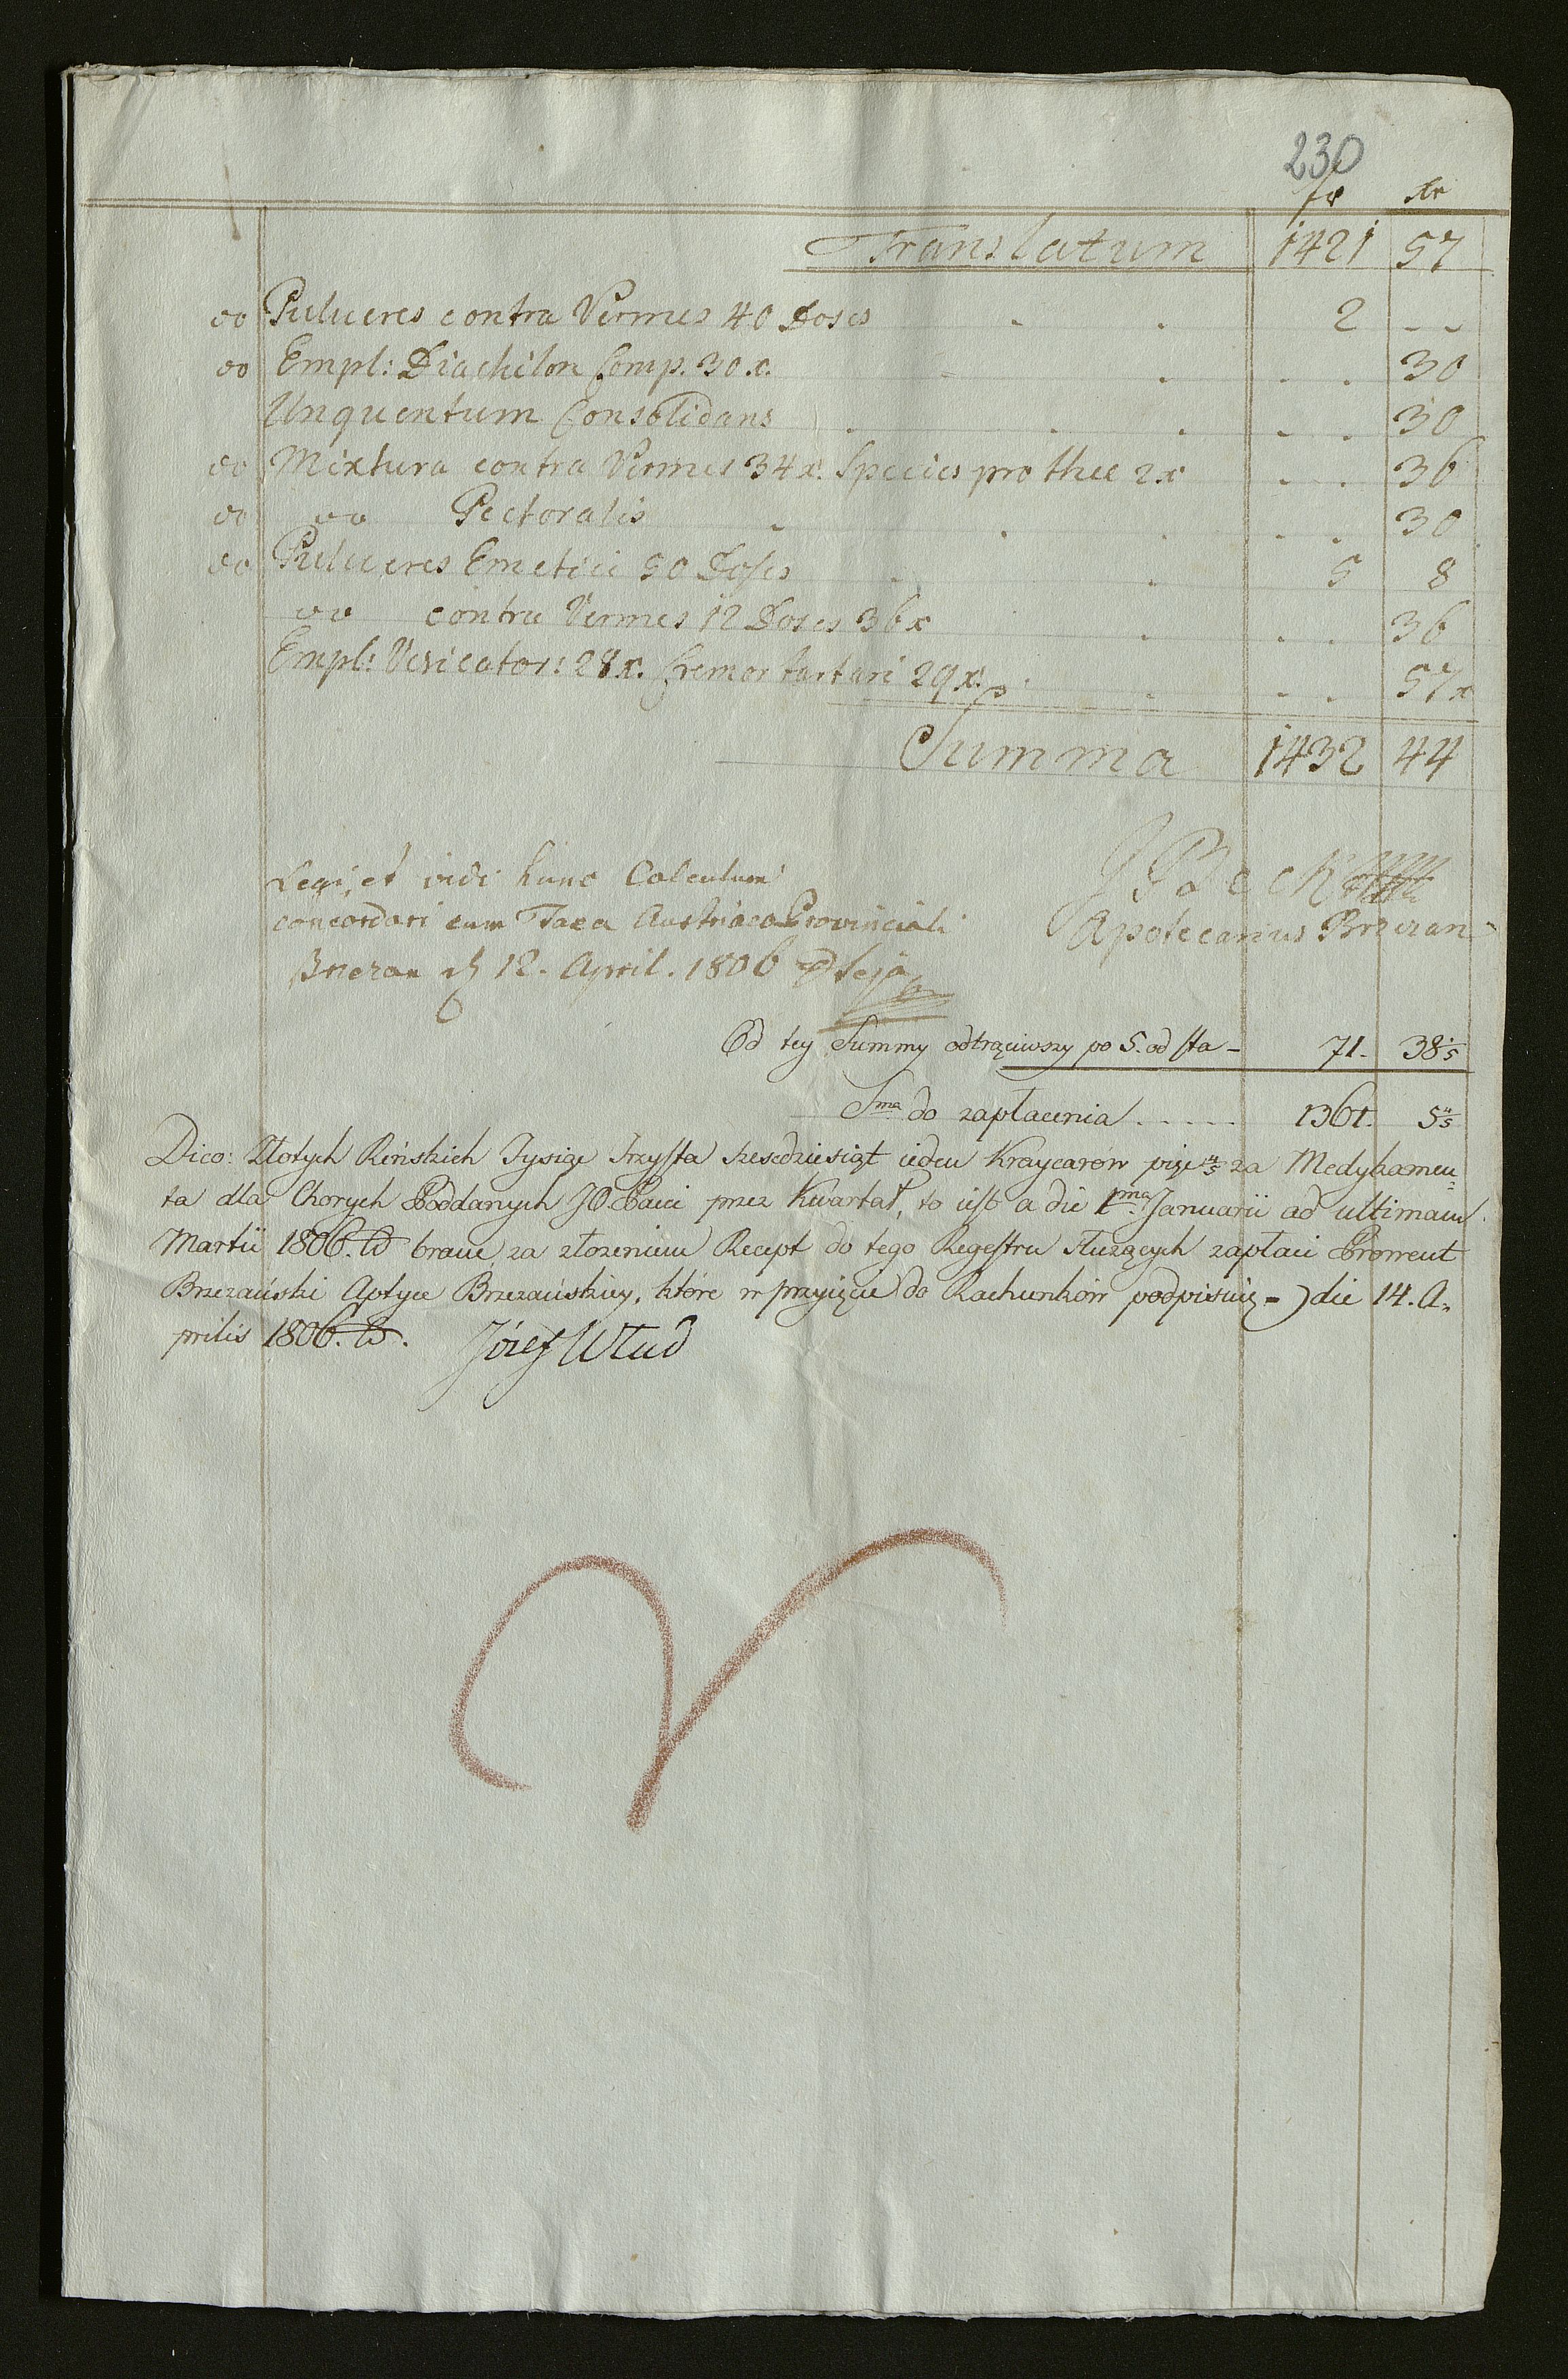 230
fr xr
Translatum 1421 57
do Pulueres contra Vermes 40 Doses . . 2 - -
do Empl: Diachilon Comp. 30.x. . . . 30
Unquentum Consolidans . . . . . 30
do Mixtura contra Vermes 34x. Species pro thee 2x . . . 36
do do Pectoralis . . . . . 30
do Pulueres Emetici 50 Doses . . 5 8
do contra Vermes 12 Doses 36x . . . 36
Empl: Vesicator: 28x. Cremor tartari 29x. . . . 57x
Summa 1432 44
Legi, et vidi hunc Calculum
concordari cum Taxa Austriaco Provinciali
Brzezan d 12. April. 1806
JP Beck
Apotecarius Brzezan
Od tey Summy odtrąciwszy po 5. od sta - 71. 38 1/5
Sma do zapłacenia ..... 1361. 5 4/5
Dico: Złotych Rińskich Tysiąc Trzysta szescdziesiąt ieden Kraycarow pięc 4/5 za Medykamen=
ta dla Chorych Poddanych JO. Pani przez Kwartał, to iest a die 1ma Januarii ad ultimam
Martii 1806. biorąc za złozeniem Recept do tego Regestru służących zapłaci Prowent
Brzezański Aptyce Brzezańskiey, które w przyięcie do Rachunków podpisuię - ) die 14. A=
prilis 1806. Józef Wład